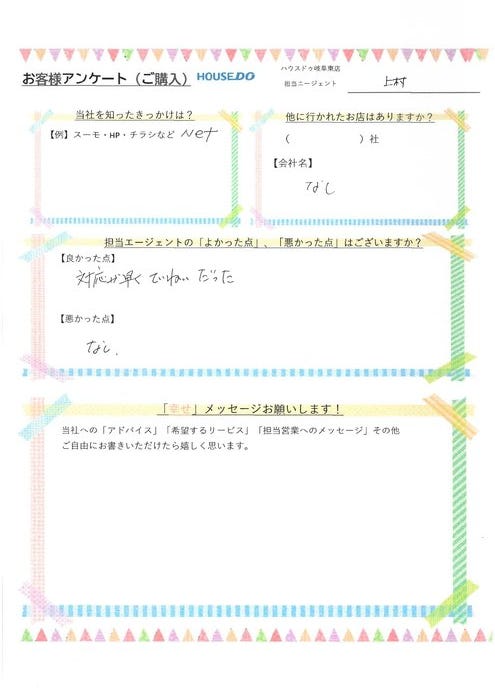 お客様アンケート（ご購入） HOUSEDO
ハウスドゥ岐阜東店
担当エージェント 上村
当社を知ったきっかけは？
【例】スーモ・HP・チラシなど Net
他に行かれたお店はありますか？
（ ）社
【会社名】
なし
担当エージェントの「よかった点」、「悪かった点」はございますか？
【良かった点】
対応が早くていねいだった
【悪かった点】
なし.
「幸せ」メッセージお願いします！
当社への「アドバイス」「希望するサービス」「担当営業へのメッセージ」その他
ご自由にお書きいただけたら嬉しく思います。